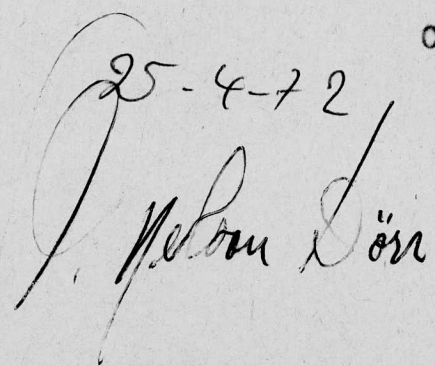 25-4-72
J. Nelson Dörr